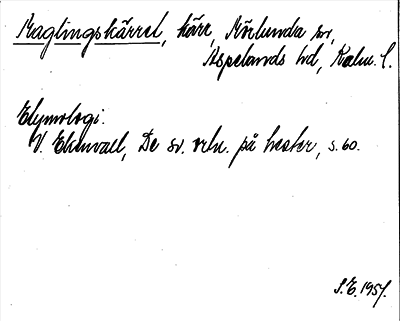 Maglingskärret, kärr, Mörlunda sn,
Aspelands hd, Kalm. l.
Etymologi.
V. Ekenvall, De sv. ortn. på hester, s. 60.
S.E. 1957.